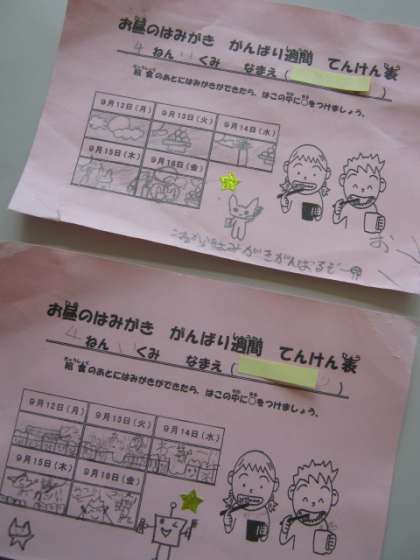 お昼のはみがき がんばり週間 てんけん表
4 ねん い くみ なまえ( )
給食のあとにはみがきができたら、はこの中に○をつけましょう。
9月12日(月) 9月13日(火) 9月14日(水)
9月15日(木) 9月16日(金)
これからはみがきがんばるぞー
お昼のはみがき がんばり週間 てんけん表
4 ねん い くみ なまえ( )
給食のあとにはみがきができたら、はこの中に○をつけましょう。
9月12日(月) 9月13日(火) 9月14日(水)
9月15日(木) 9月16日(金)